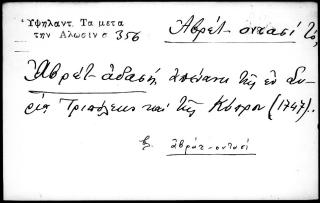 Ὑψηλαντ. Τα μετα
την Αλωσιν σ 356
Ἀβρέτ-οντασί τό,
Ἀβρέτ-ἀδασή, ἀπέναντι τῆς ἐν Συ-
ρίᾳ Τριπόλεως καί τῆς Κύπρου (1747).
β. ἀβράτ-οντασί